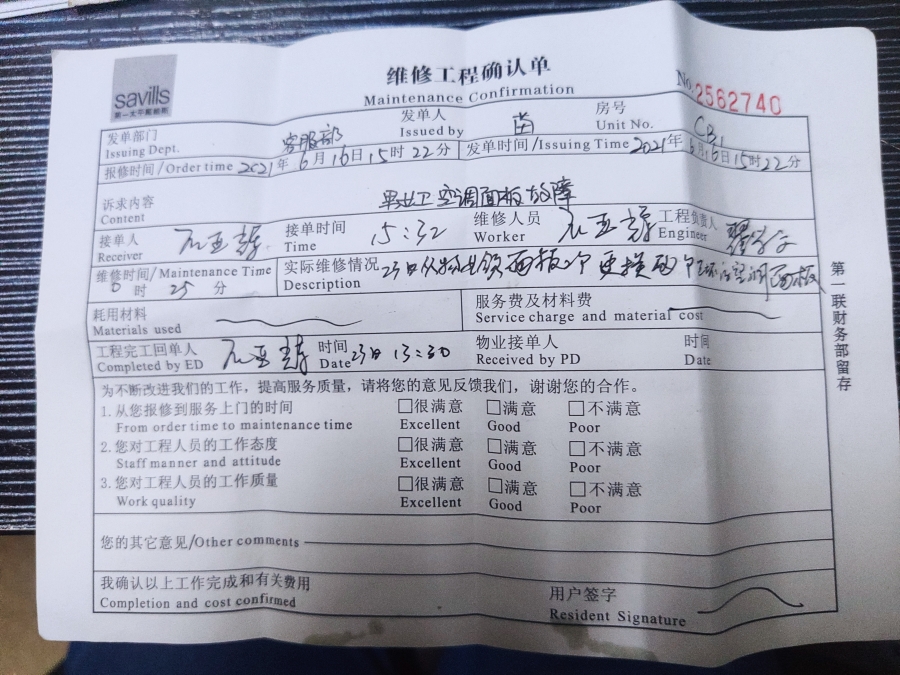 savills
第一太平戴维斯
维修工程确认单
Maintenance Confirmation
No 2562740
发单部门 客服部 发单人 苗 房号 CB1
Issuing Dept. Issued by Unit No.
报修时间/Order time 2021年6月16日15时22分 发单时间/Issuing Time 2021年6月16日15时22分
诉求内容 空调面板故障
Content
接单人 接单时间 15:32 维修人员 工程负责人
Receiver Time Worker Engineer
维修时间/Maintenance Time 实际维修情况 23日从物业领面板2个 更换两个 空调面板
时 25 分 Description
耗用材料 服务费及材料费
Materials used Service charge and material cost
工程完工回单人 时间 23日 13:30 物业接单人 时间
Completed by ED Date Received by PD Date
为不断改进我们的工作，提高服务质量，请将您的意见反馈我们，谢谢您的合作。
1.从您报修到服务上门的时间 □很满意 □满意 □不满意
From order time to maintenance time Excellent Good Poor
2.您对工程人员的工作态度 □很满意 □满意 □不满意
Staff manner and attitude Excellent Good Poor
3.您对工程人员的工作质量 □很满意 □满意 □不满意
Work quality Excellent Good Poor
您的其它意见/Other comments
我确认以上工作完成和有关费用 用户签字
Completion and cost confirmed Resident Signature
第一联财务部留存